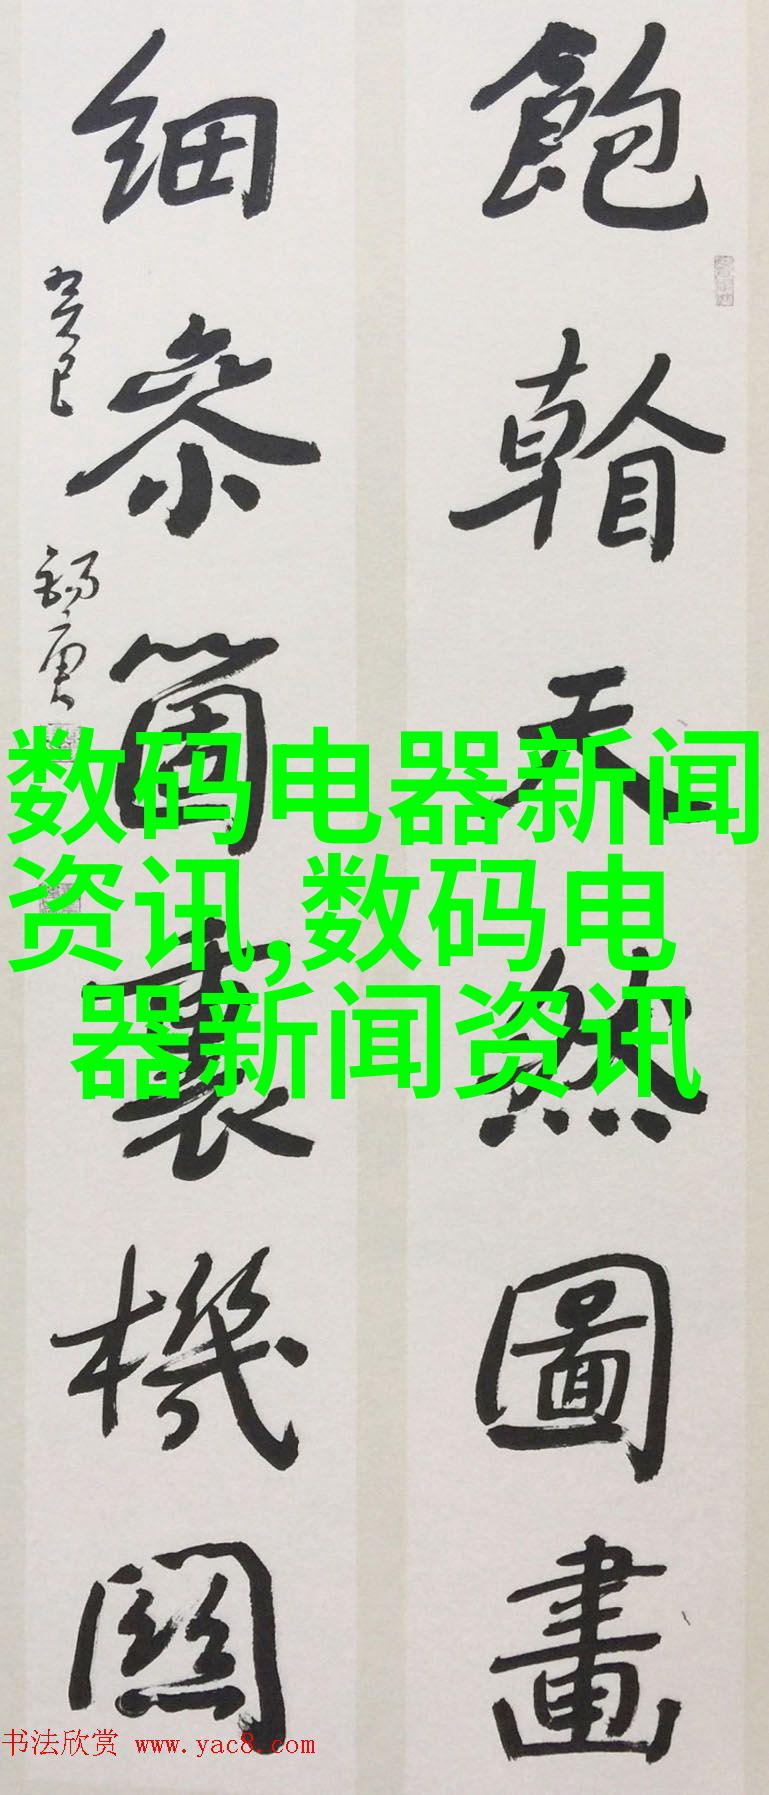 飽看天然圖畫
細參箇裏機關
癸巳
数码电器新闻
资讯,数码电
器新闻资讯
书法欣赏 www.yac8.com